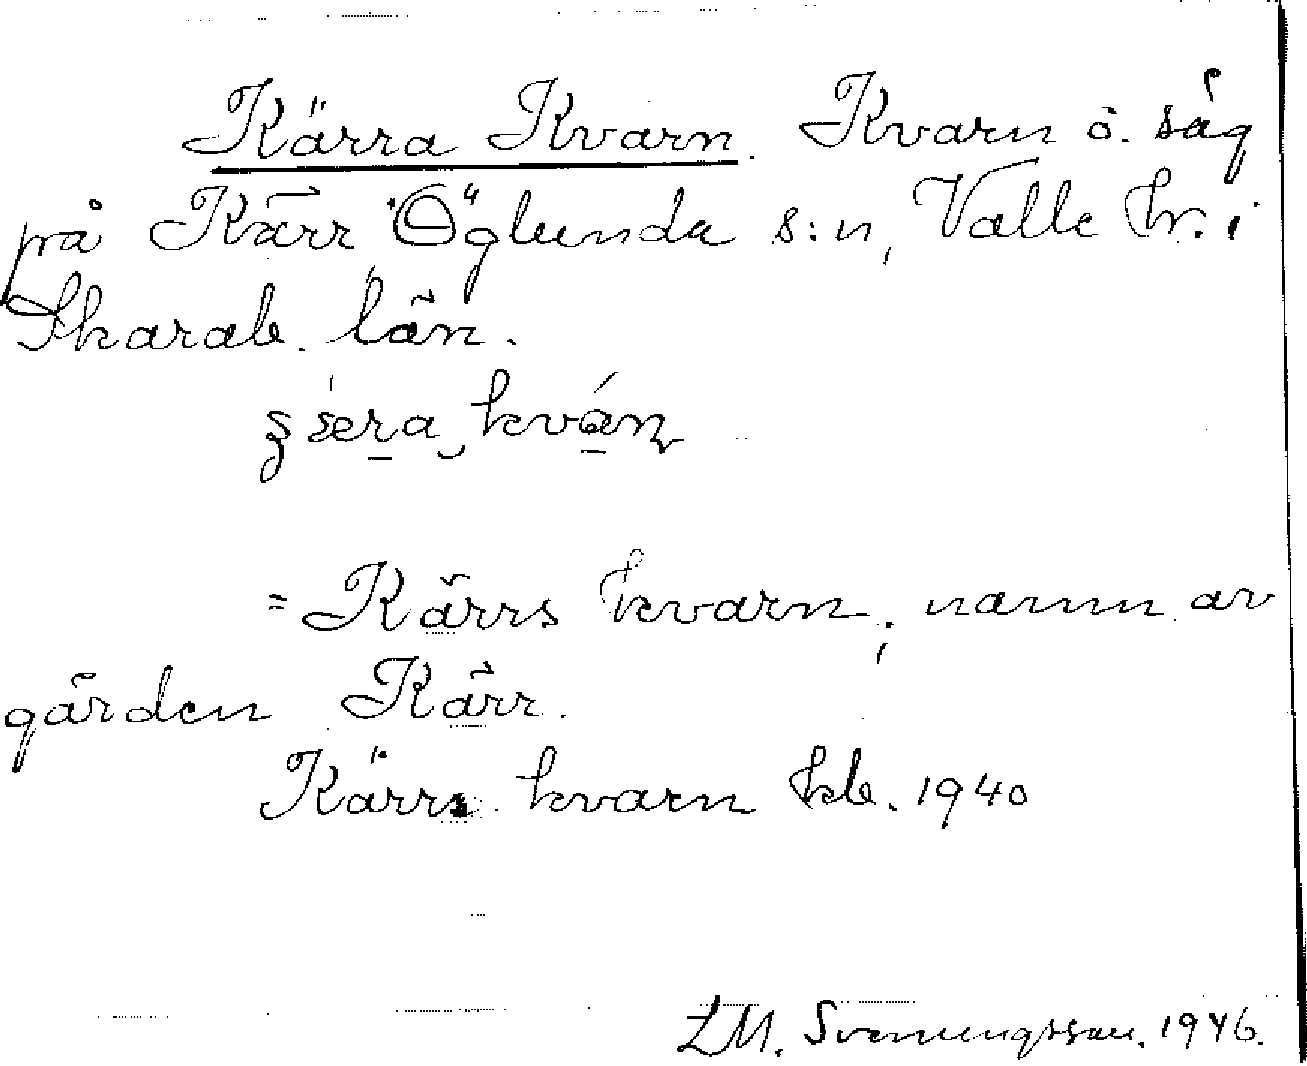 Kärra Kvarn. Kvarn o. såg
på Kärr, Öglunda s:n, Valle hr. i
Skarab. län.
= Kärrs kvarn; namn av
gården Kärr.
Kärrs kvarn kb. 1940
LM. Svenungsson. 1946.